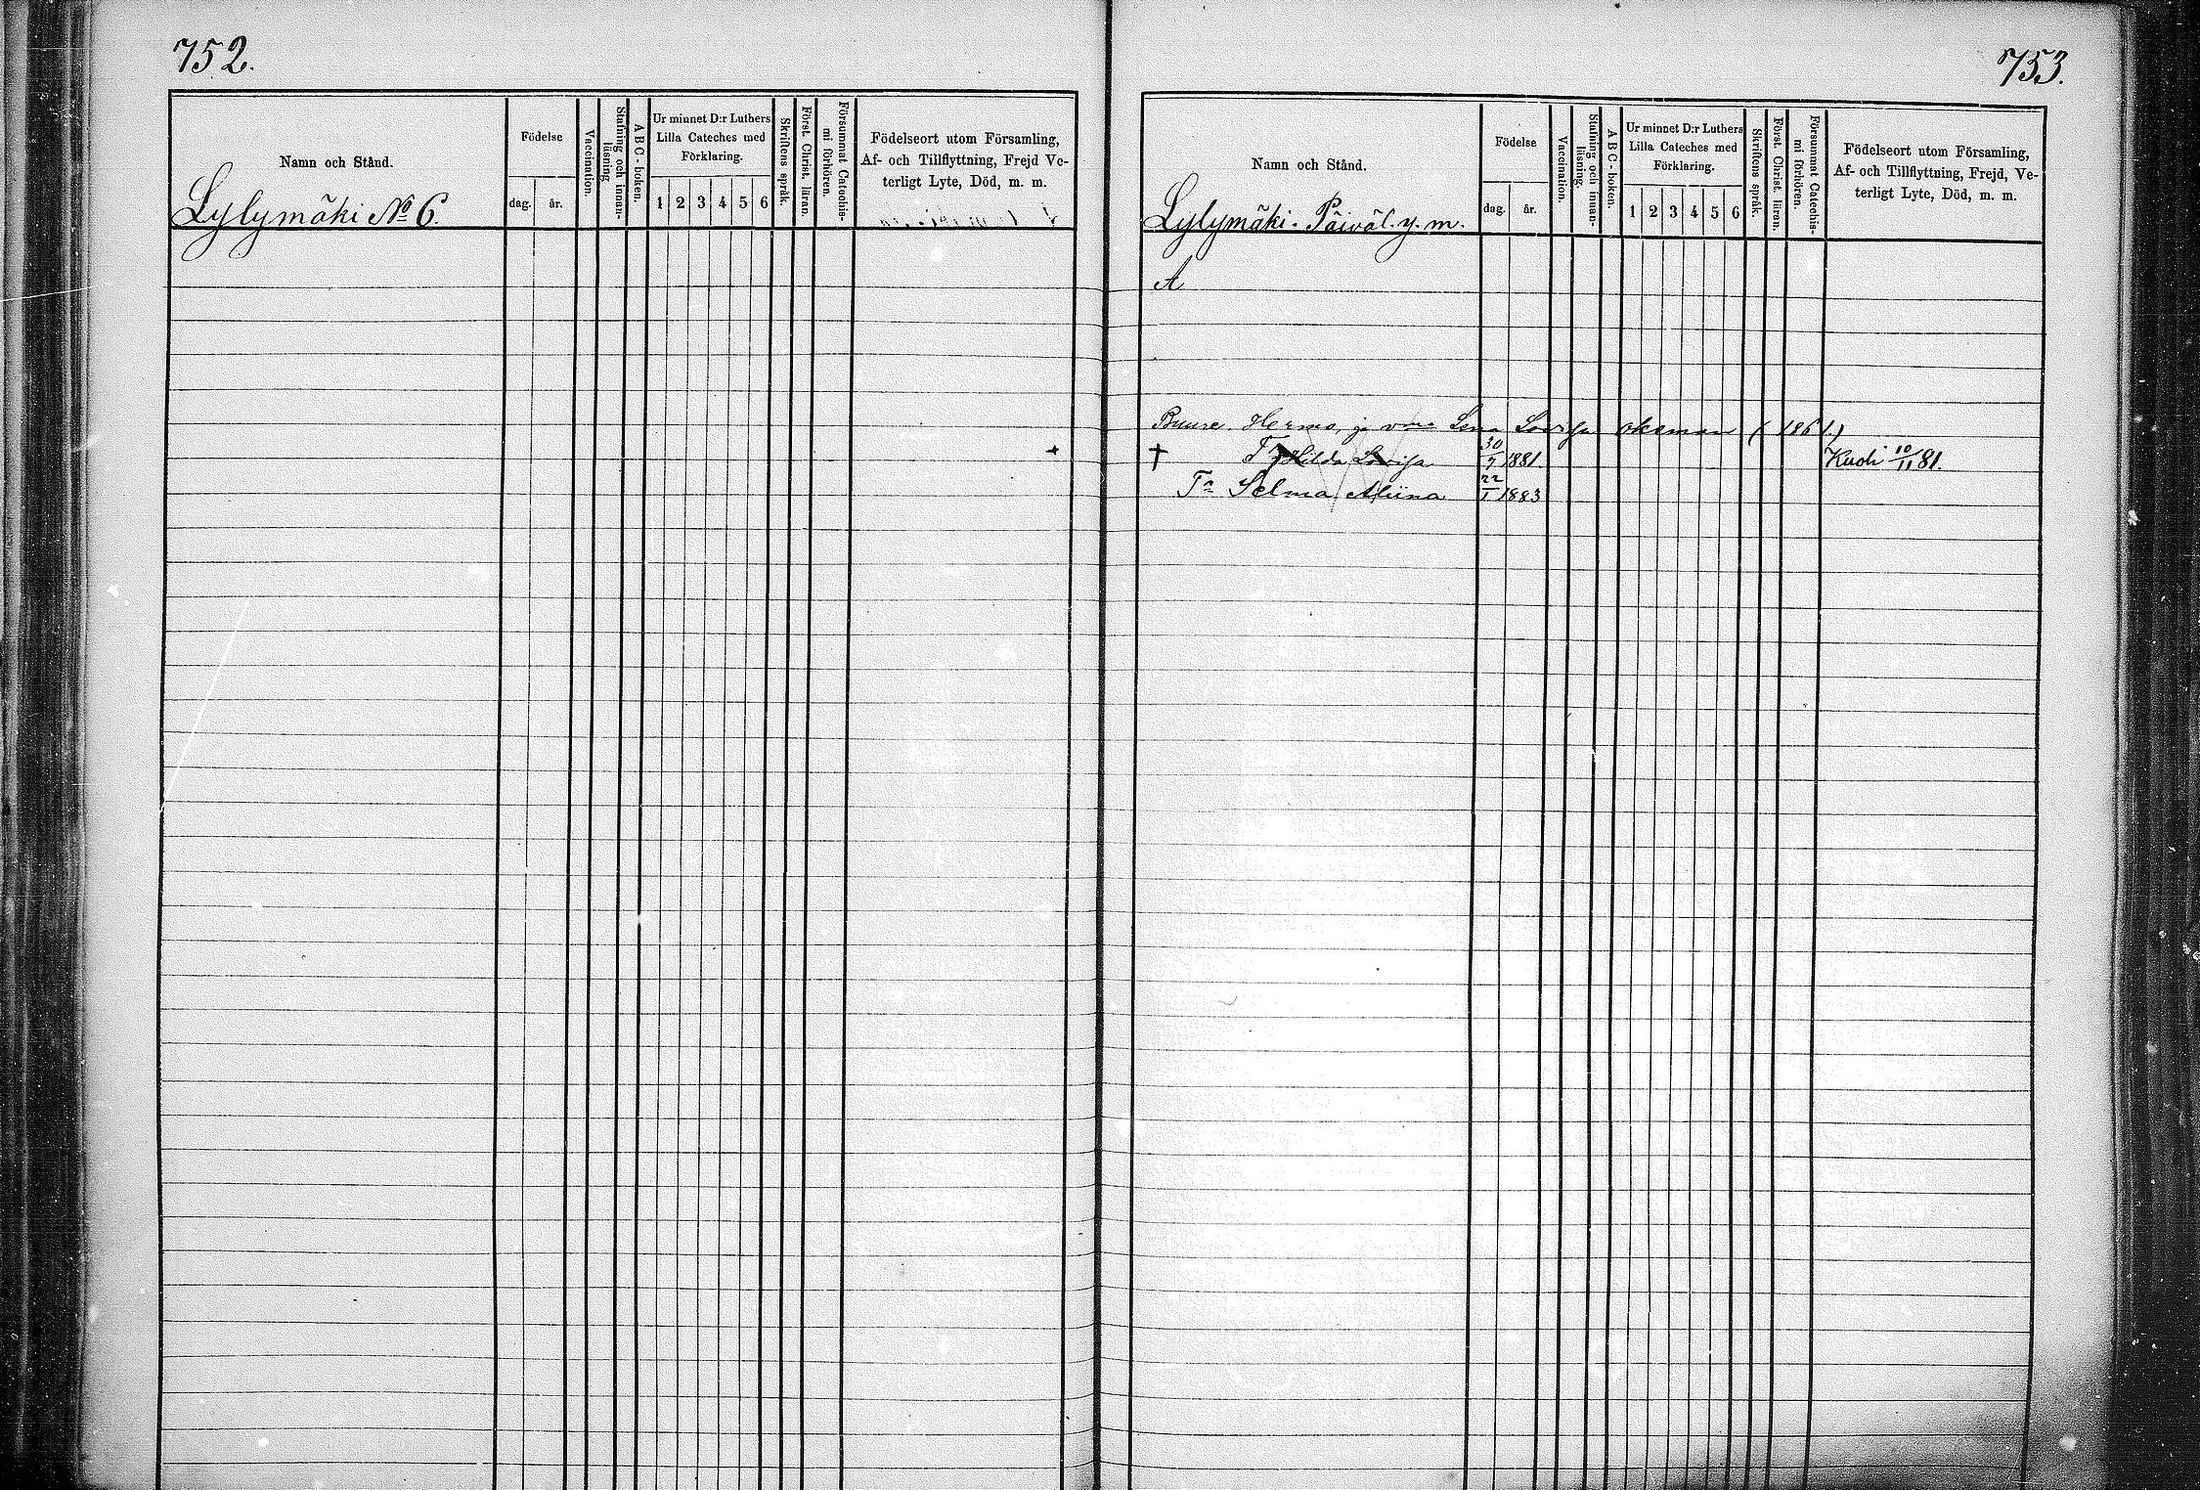 752.
Namn och Stånd.
Lylymäki No 6.
Födelse
dag.
år.
Vaccination.
Stafning och innan-
läsning
ABC-boken.
Ur minnet D:r Luthers
Lilla Cateches med
Förklaring.
1 2 3 4 5 6
Skriftens språk.
Först. Christ. läran.
Försummat Catechis-
mi förhören.
Födelseort utom Församling,
Af- och Tillflyttning, Frejd Ve-
terligt Lyte, Död, m. m.
753.
Namn och Stånd.
Lylymäki. Päiväl. y. m.
Födelse
dag.
år.
Vaccination.
Stafning och innan-
läsning.
ABC-boken.
Ur minnet D:r Luthers
Lilla Cateches med
Förklaring.
1 2 3 4 5 6
Skriftens språk.
Först. Christ. läran.
Försummat Catechis-
mi förhören.
Födelseort utom Församling,
Af- och Tillflyttning, Frejd, Ve-
terligt Lyte, Död, m. m.
A
Herms, ja Lena Lovisa (1861.)
† T. Hilda Lovisa 30/9 1881. Kuoli 10/11 81.
Tr Selma Aliina 22/1 1883